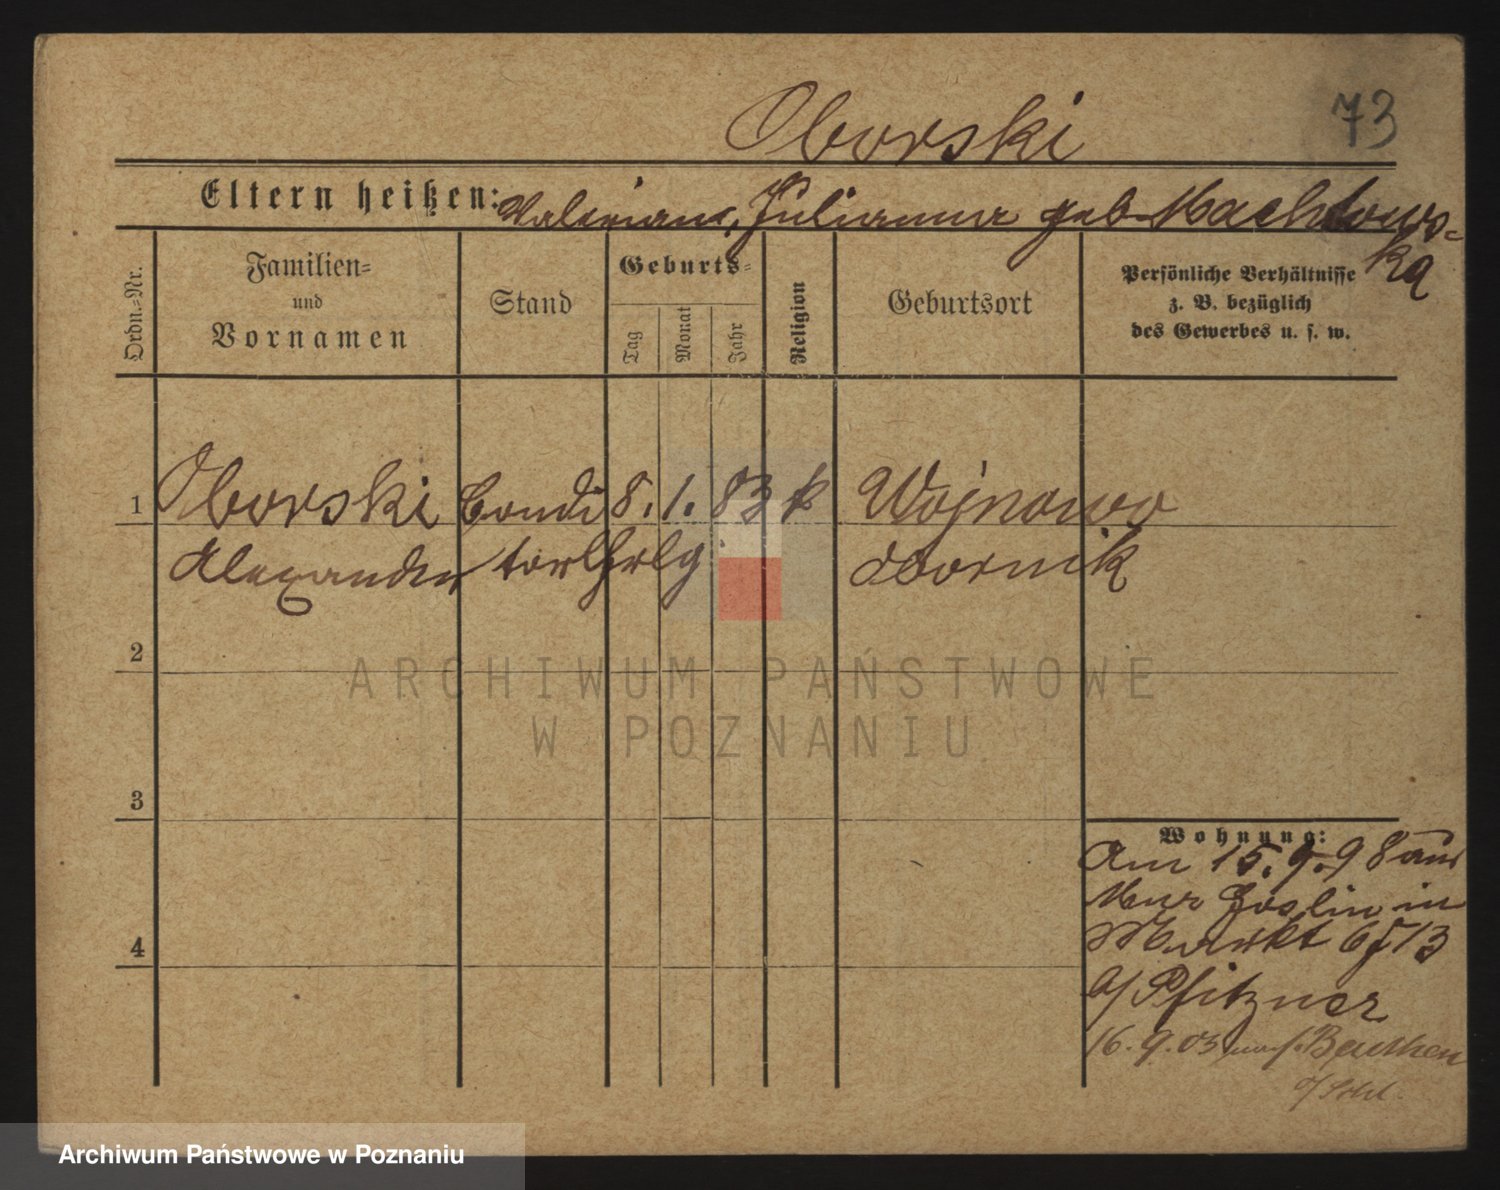 Oborski
73
Eltern heißen: Valerian, Julianna geb Machtows-
ka
Ordn.=Nr.
Familien=
und
Vornamen
Stand
Geburts=
Tag
Monat
Jahr
Religion
Geburtsort
Persönliche Verhältnisse
z. B. bezüglich
des Gewerbes u. s. w.
1 Oborski Condi 8. 1. 83 k Wojnowo
Alexander torlhrlg Obornik
2
3
4
Wohnung:
Am 15. 9. 98 aus
Mur Goslin in
Markt 6 f 13
b/ Pfitzner
16. 9. 03 nach Beuthen
o/Schl.
ARCHIWUM PAŃSTWOWE
W POZNANIU
Archiwum Państwowe w Poznaniu